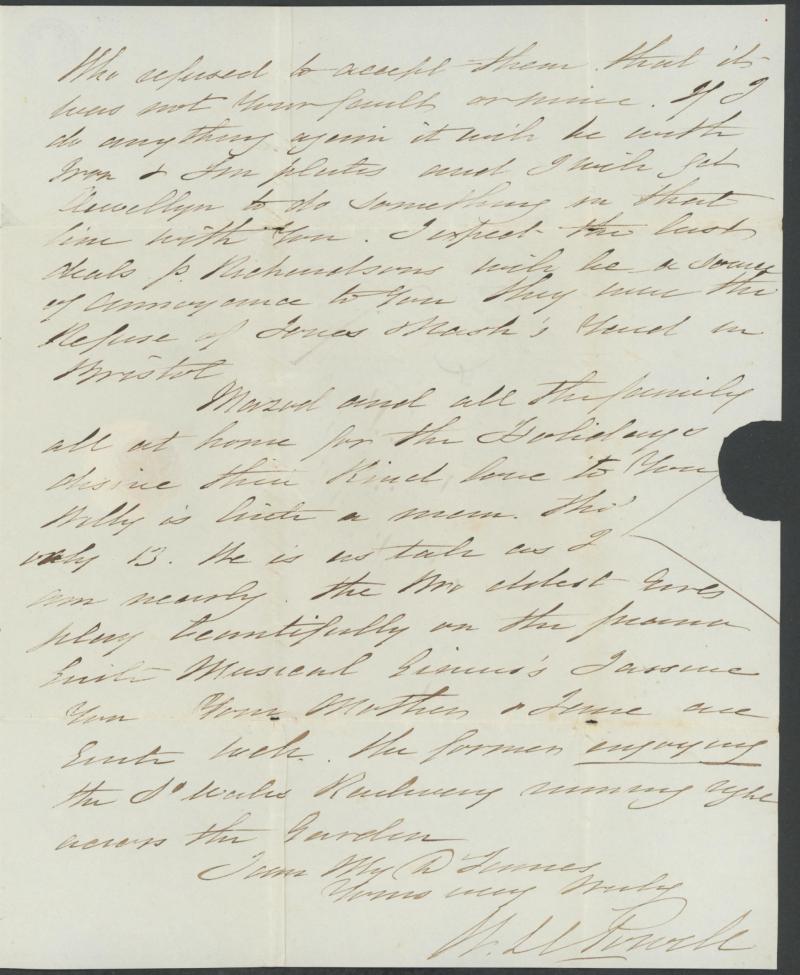 Who refused to accept them. that it
was not Your fault or mine. If I
do anything again it will be with
Iron & Tin plates and I will get
Llewellyn to do something in that
line with You. I expect the last
deals p. Richardsons will be a source
of annoyance to You they were the
Refuse of Jones & Nash's Yard in
Bristol
and all the family
all at home for the Holidays
desire their Kind love to You
Willy is quite a man. tho'
only 13. He is as tall as I
am nearly. the two eldest Girls
play beautifully on the piano
quite Musical Genius's I assure
You Your Mother & Jane are
quite well. the former enjoying
the So Wales Railway running right
across the Garden
I am My D James
Yours very truly
Powell